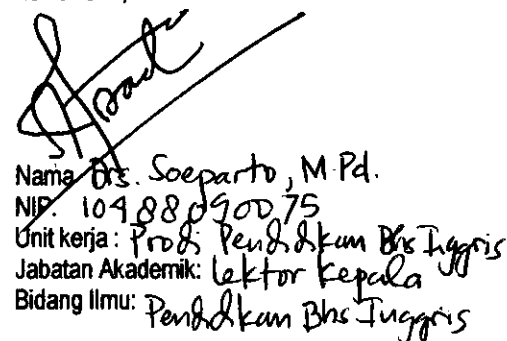 Nama Drs. Soeparto, M.Pd.
NIP. 10488090075
Unit kerja : Prodi Pendidikan Bhs Inggris
Jabatan Akademik: Lektor Kepala
Bidang Ilmu: Pendidikan Bhs Inggris